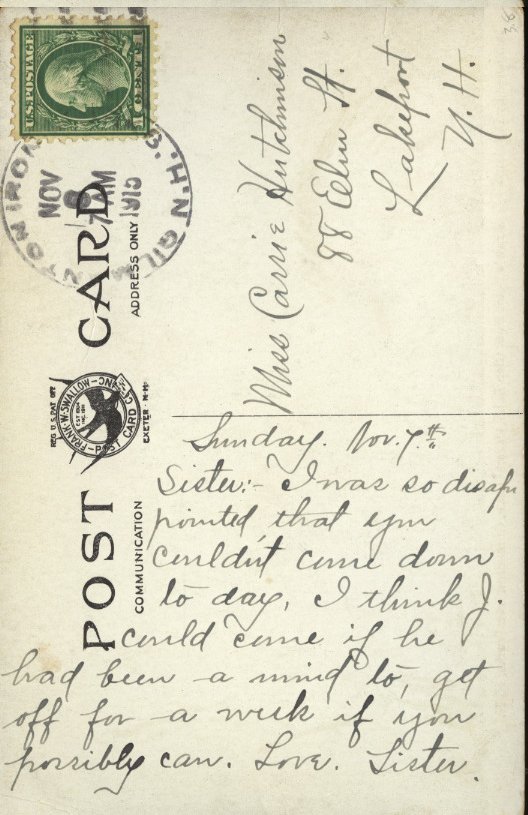 U.S. POSTAGE
1 CENT 1
GILMANTON IRON
N.H.
NOV
AM
POST CARD
ADDRESS ONLY
REG U.S. PAT OFF
FRANK·W·SWALLOW
POST CARD CO. INC.
EXETER·N·H·
COMMUNICATION
Miss Carrie Hutchinson
88 Elm St.
Lakeport
N.H.
Sunday. Nov. 7th
Sister:- I was so disap
pointed that you
couldn't come down
to day, I think J.
could come if he
had been a mind to, get
off for a week if you
possibly can. Love. Sister.